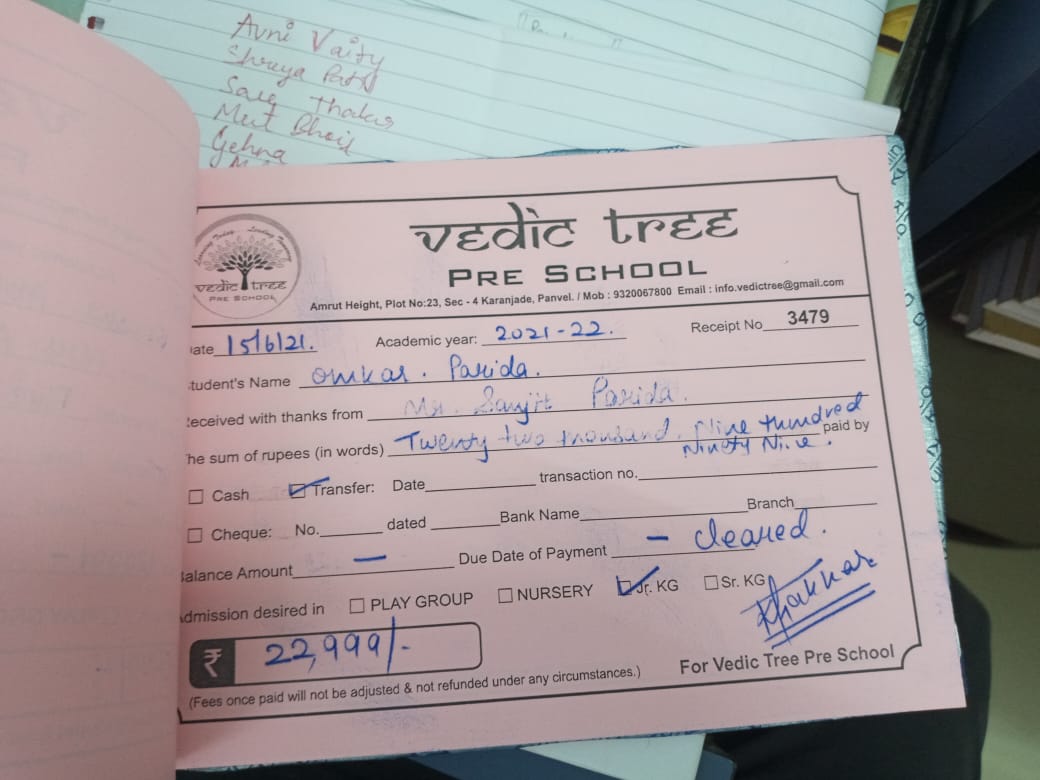 Avni Vaity
Shreya Patil
Thakur
Meet Bhoir
Gehna
vedic tree
PRE SCHOOL
vedic tree
PRE SCHOOL
Amrut Height, Plot No:23, Sec - 4 Karanjade, Panvel. / Mob : 9320067800 Email : info.vedictree@gmail.com
ate 15/6/21. Academic year: 2021-22. Receipt No 3479
tudent's Name Omkar. Parida.
eceived with thanks from Mr. Sanjit Parida.
he sum of rupees (in words) Twenty two thousand. Nine Hundred paid by
Ninety Nine.
Cash Transfer: Date transaction no.
Cheque: No. dated Bank Name Branch
alance Amount — Due Date of Payment — cleared.
dmission desired in PLAY GROUP NURSERY Jr. KG Sr. KG
₹ 22,999/-
(Fees once paid will not be adjusted & not refunded under any circumstances.) For Vedic Tree Pre School